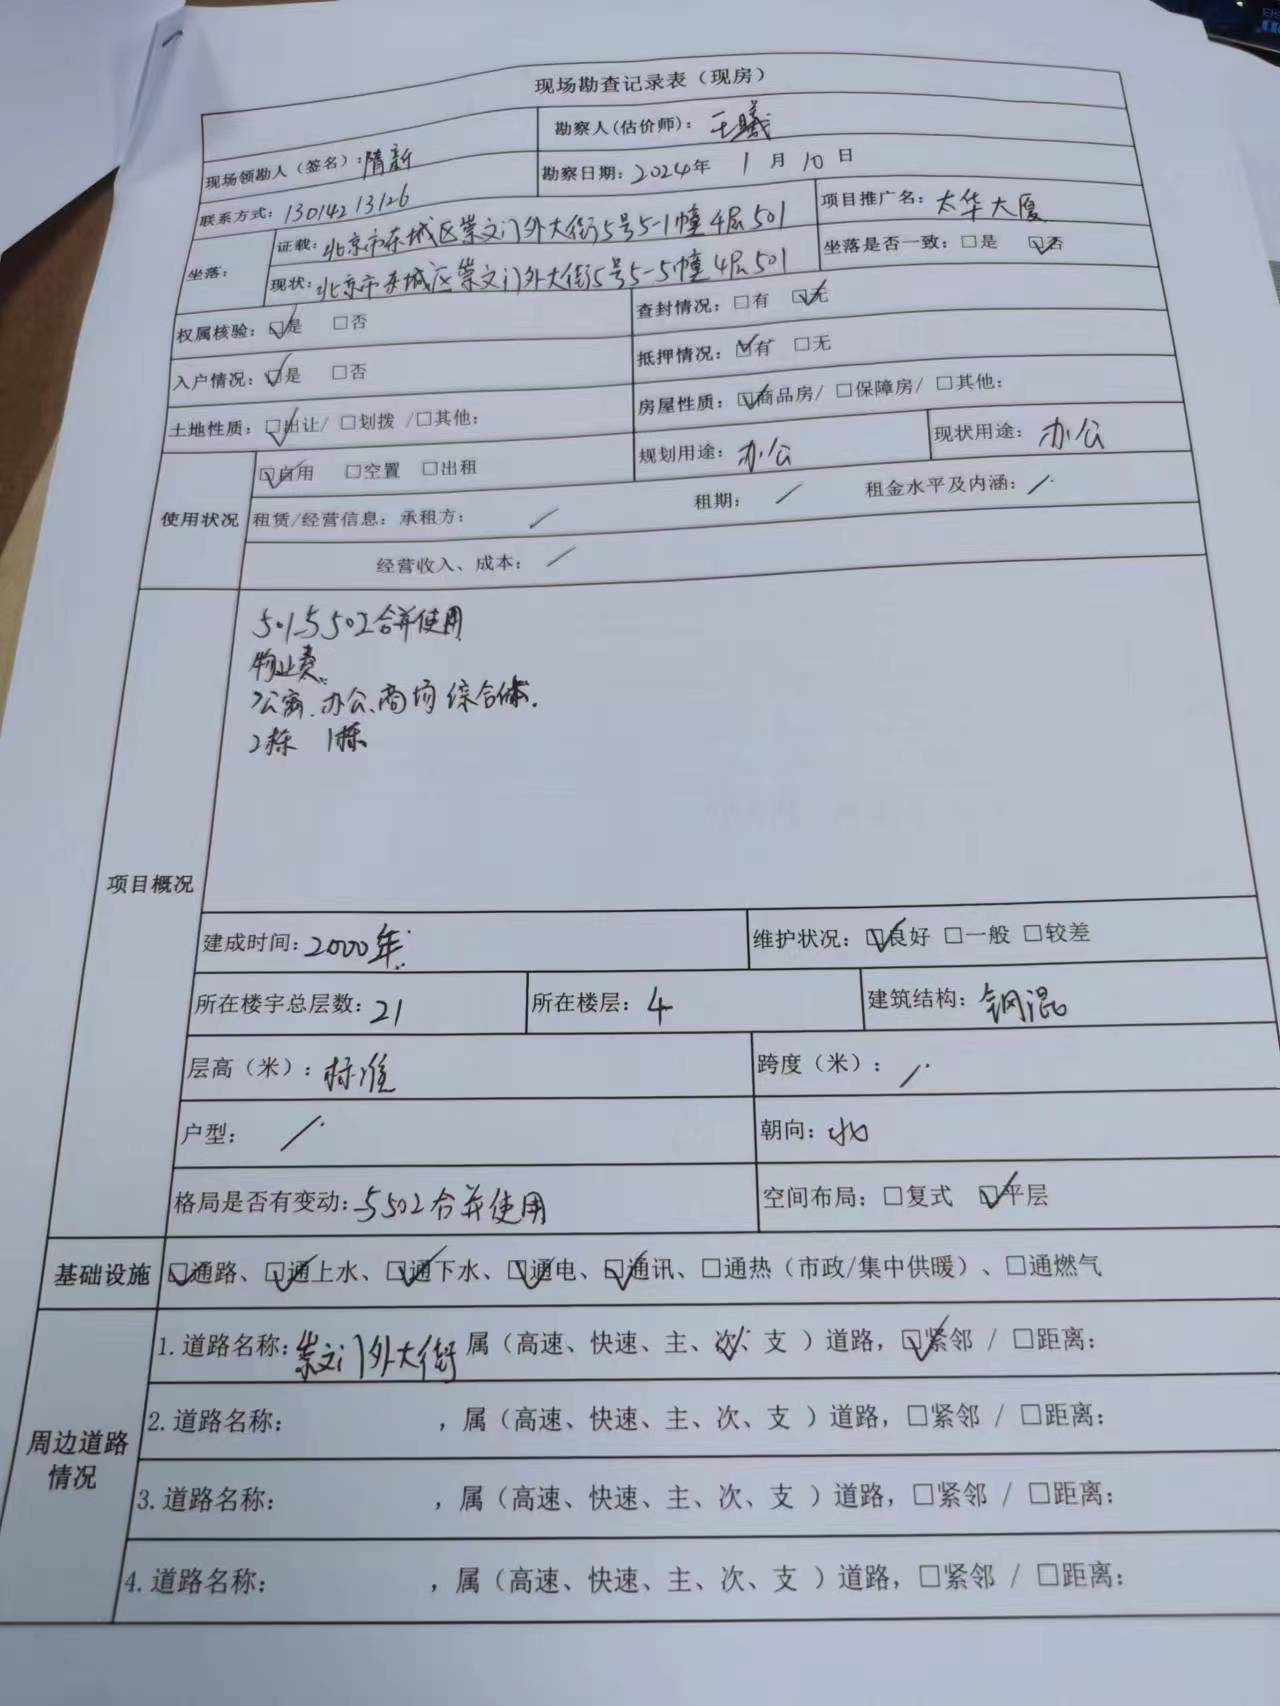 现场勘查记录表（现房）
现场领勘人（签名）：隋新 勘察人(估价师)：王曦
联系方式：13014213126 勘察日期：2024年 1月 10日
坐落： 证载：北京市东城区崇文门外大街5号5-1幢4层501 项目推广名：太华大厦
现状：北京市东城区崇文门外大街5号5-5幢4层501 坐落是否一致：□是 ☑否
权属核验：☑是 □否 查封情况：□有 ☑无
入户情况：☑是 □否 抵押情况：☑有 □无
土地性质：☑出让/ □划拨 /□其他： 房屋性质：☑商品房/ □保障房/ □其他：
使用状况 ☑自用 □空置 □出租 规划用途：办公 现状用途：办公
租赁/经营信息：承租方： / 租期： / 租金水平及内涵： /
经营收入、成本： /
项目概况
501与502合并使用
物业费
公寓、办公、商场 综合体.
2栋 1栋
建成时间：2000年 维护状况：☑良好 □一般 □较差
所在楼宇总层数：21 所在楼层：4 建筑结构：钢混
层高（米）：标准 跨度（米）： /
户型： / 朝向：北
格局是否有变动：与502合并使用 空间布局：□复式 ☑平层
基础设施 ☑通路、☑通上水、☑通下水、☑通电、☑通讯、□通热（市政/集中供暖）、□通燃气
周边道路情况
1.道路名称：崇文门外大街 属（高速、快速、主、次、支 ）道路，☑紧邻 / □距离：
2.道路名称： ，属（高速、快速、主、次、支 ）道路，□紧邻 / □距离：
3.道路名称： ，属（高速、快速、主、次、支 ）道路，□紧邻 / □距离：
4.道路名称： ，属（高速、快速、主、次、支 ）道路，□紧邻 / □距离：